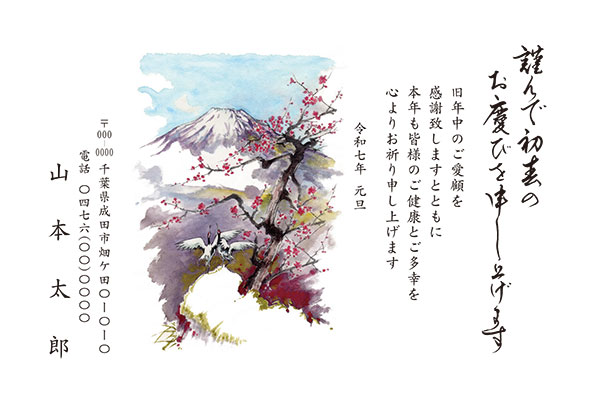 謹んで初春の
お慶びを申し上げます
旧年中のご愛顧を
感謝致しますとともに
本年も皆様のご健康とご多幸を
心よりお祈り申し上げます
令和七年 元旦
〒000-0000 千葉県成田市畑ケ田〇ー〇ー〇
電話 〇四七六(〇〇)〇〇〇〇
山本太郎